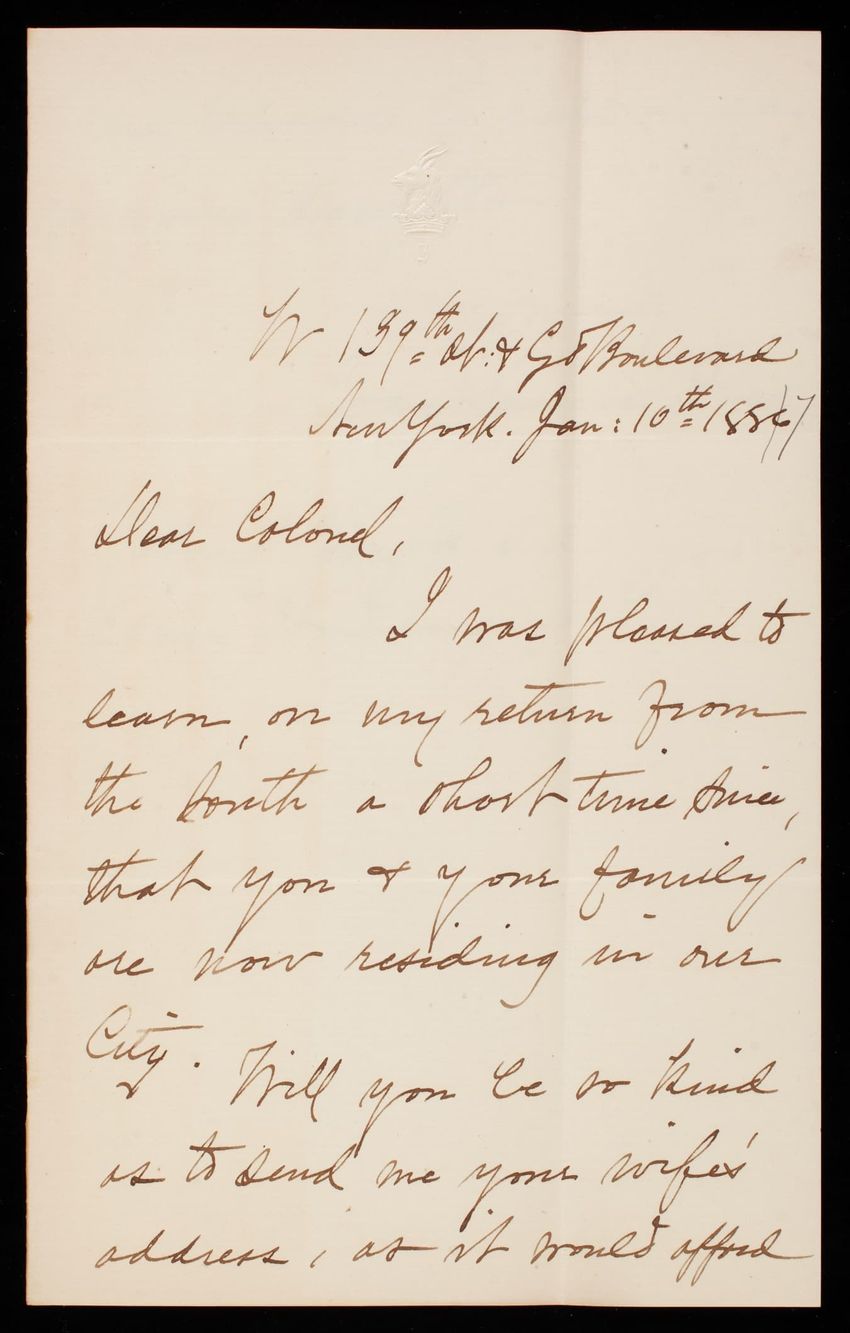 W 139th St: & Gd Boulevard
New York. Jan: 10th 1887
Dear Colonel,
I was pleased to
learn, on my return from
the South a short time since,
that you & your family
are now residing in our
City. Will you be so kind
as to send me your wife's
address, as it would afford